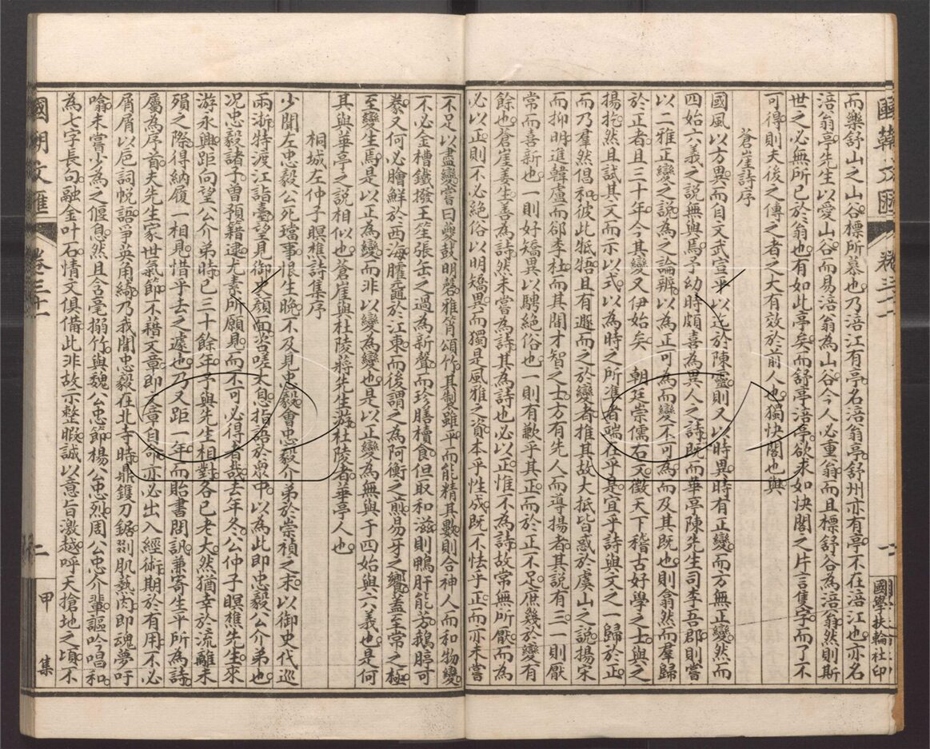 而樂舒山之山谷標所慕也乃涪江有亭名涪翁亭舒州亦有亭不在涪江也亦名
涪翁亭先生以愛山谷而易涪翁為山谷今人必重翁而且標舒谷為涪翁然則斯
世之必無所已於翁也有如此亭矣而舒亭涪亭欲求如快閣之片言隻字而了不
可得則夫後之傳之者之大有效於前人也獨快閣也與
蒼崖詩序
國風以方異而自文武宣平以迄於陳靈則又以時異時有正變而方無正變然而
四始六義之說無與焉予幼時頗喜為異人之詩既而華亭陳先生司李吾郡則嘗
以二雅正變之說為之論辨以為正可為而變不可為而及其既也則翕然而羣歸
於正者且三十年今其變又伊始矣 朝廷崇儒右文徵天下稽古好學之士與之
揚扢然且試其文而示以式以為時之所準者端在乎是宜乎詩與文之一歸於正
而乃羣然倡和彼此牴牾且有遯而之於變者推其故大抵皆惑於虞山之說揚宋
而抑明進韓盧而郤李杜而其間才智之士方有先人而導揚者其說有三一則厭
常而喜新也一則好矯異以騁絕俗也一則有歉乎其正而於正不足庶幾於變有
餘也蒼崖善生喜為詩然未嘗為詩其為詩也必以正惟不為詩故常無所厭而為
必以正則不必絕俗以明矯異而獨是風雅之資本乎性成既不怯乎正而亦未嘗
不足以盡變嘗曰鼖鼓明磬雅筲頌竹其製雖平而能精其數則合神人而和物變
不必金槽鐵撥王筌張缶之過為新聲而珍膳櫝食但取和滋則鴨肝能方鵝脝可
豢又何必膾鮮於西海臛黿於江東而後謂之為阿衡之煎易牙之饗蓋至常之極
至變生焉是以正為變而非以變為變也是以正變為無與于四始與六義也是何
其與華亭之說相似也蒼崖與杜陵蔣先生遊杜陵者華亭人也
桐城左仲子暝樵詩集序
少聞左忠毅公死璫事恨生晚不及見忠毅會忠毅介弟於崇禎之末以御史代巡
兩浙特渡江詣臺望見御史顏而咨嗟太息指語於眾中以為此即忠毅公介弟也
况忠毅諸子曾預籍逮尤素所願見而不可必得者哉去年冬公仲子暝樵先生來
游永興距向望公介弟時已三十餘年予與先生相對各已老大然猶幸於流離未
殞之際得納履一相見惜乎去之遽也乃又距一年而貽書問訊兼寄生平所為詩
屬為序首夫先生家世氣節不藉文章即文章自命亦必出入經術期於有用不必
屑屑以巵詞悅語爭英角綺乃我聞忠毅在北寺時鼎鑊刀鋸剒肌爇肉即魂夢呼
噏未嘗少為之偃息然且含毫搦竹與魏公忠節楊公忠烈周公忠介輩謳吟唱和
為七字長句融金叶石情文俱備此非故示整暇誠以意旨激越呼天搶地之頃不
國朝文匯 卷三十一 二 甲集
國學扶輪社印